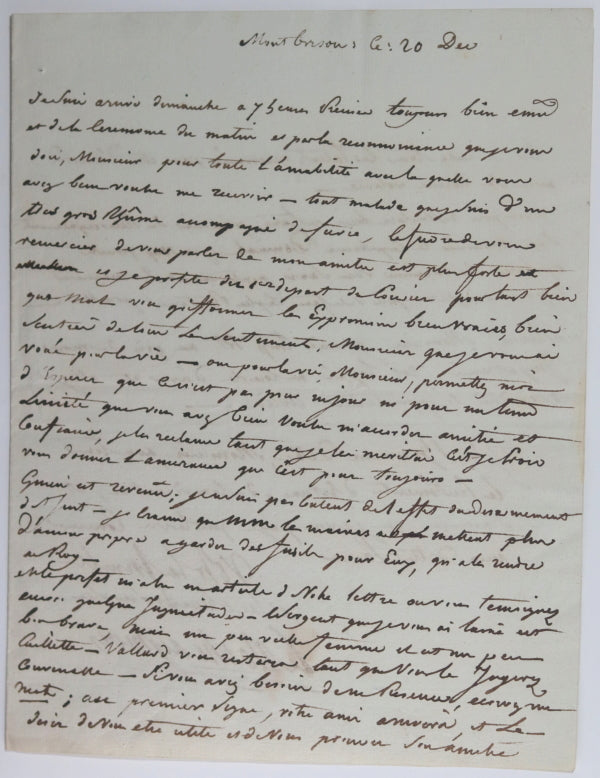 Montbrison: le: 20 Dec
Je suis arrivé dimanche a 7 heures Précise toujours bien emu
et de la Ceremonie du matin et par la reconnoissance que je vous
dois, Monsieur pour toute L'amabilité avec la quelle vous
avez bien voulu me recevoir — tout malade que je suis d'un
gros Rhûme accompagné de fievre, le de vous
remercier de vous parler de mon amitié est plus forte
et je profite du départ de Courier pour tout bien
que mal vous griffonner les Expression bien vraies, bien
de tous Les Sentiments, Monsieur que je vous ai
voué pour la vie — oui pour la vie, Monsieur, permettez moi
d'Esperer que Ce n'est pas pour un jour ni pour un tems
Limité que vous avez bien voulu m'accorder amitié et
Confiance, je les reclame tant que je les meritrai Cest je Crois
vous donner L'assurance que C'est pour toujours —
est revenu; je ne suis pas Content de l'effet du desarmement
— je Crains que les maires mettent plus
d'amour propre a garder des fusils pour Eux, qu'a les rendre
au Roy —
le prefet m'a lu un article d Votre lettre ou vous temoignez
encore quelque Inquietude — le Sergent que je vous ai laissé est
bien brave, mais un peu vielle femme et est un peu
— Vallard vous restera tant que Vous le Jugerez
Convenable — Si vous avez besoin de ma Presence, ecrivez un
mot; au premier Signe, votre ami arrivera, et Le
desir de Vous etre utile et de Vous prouver Son amitié